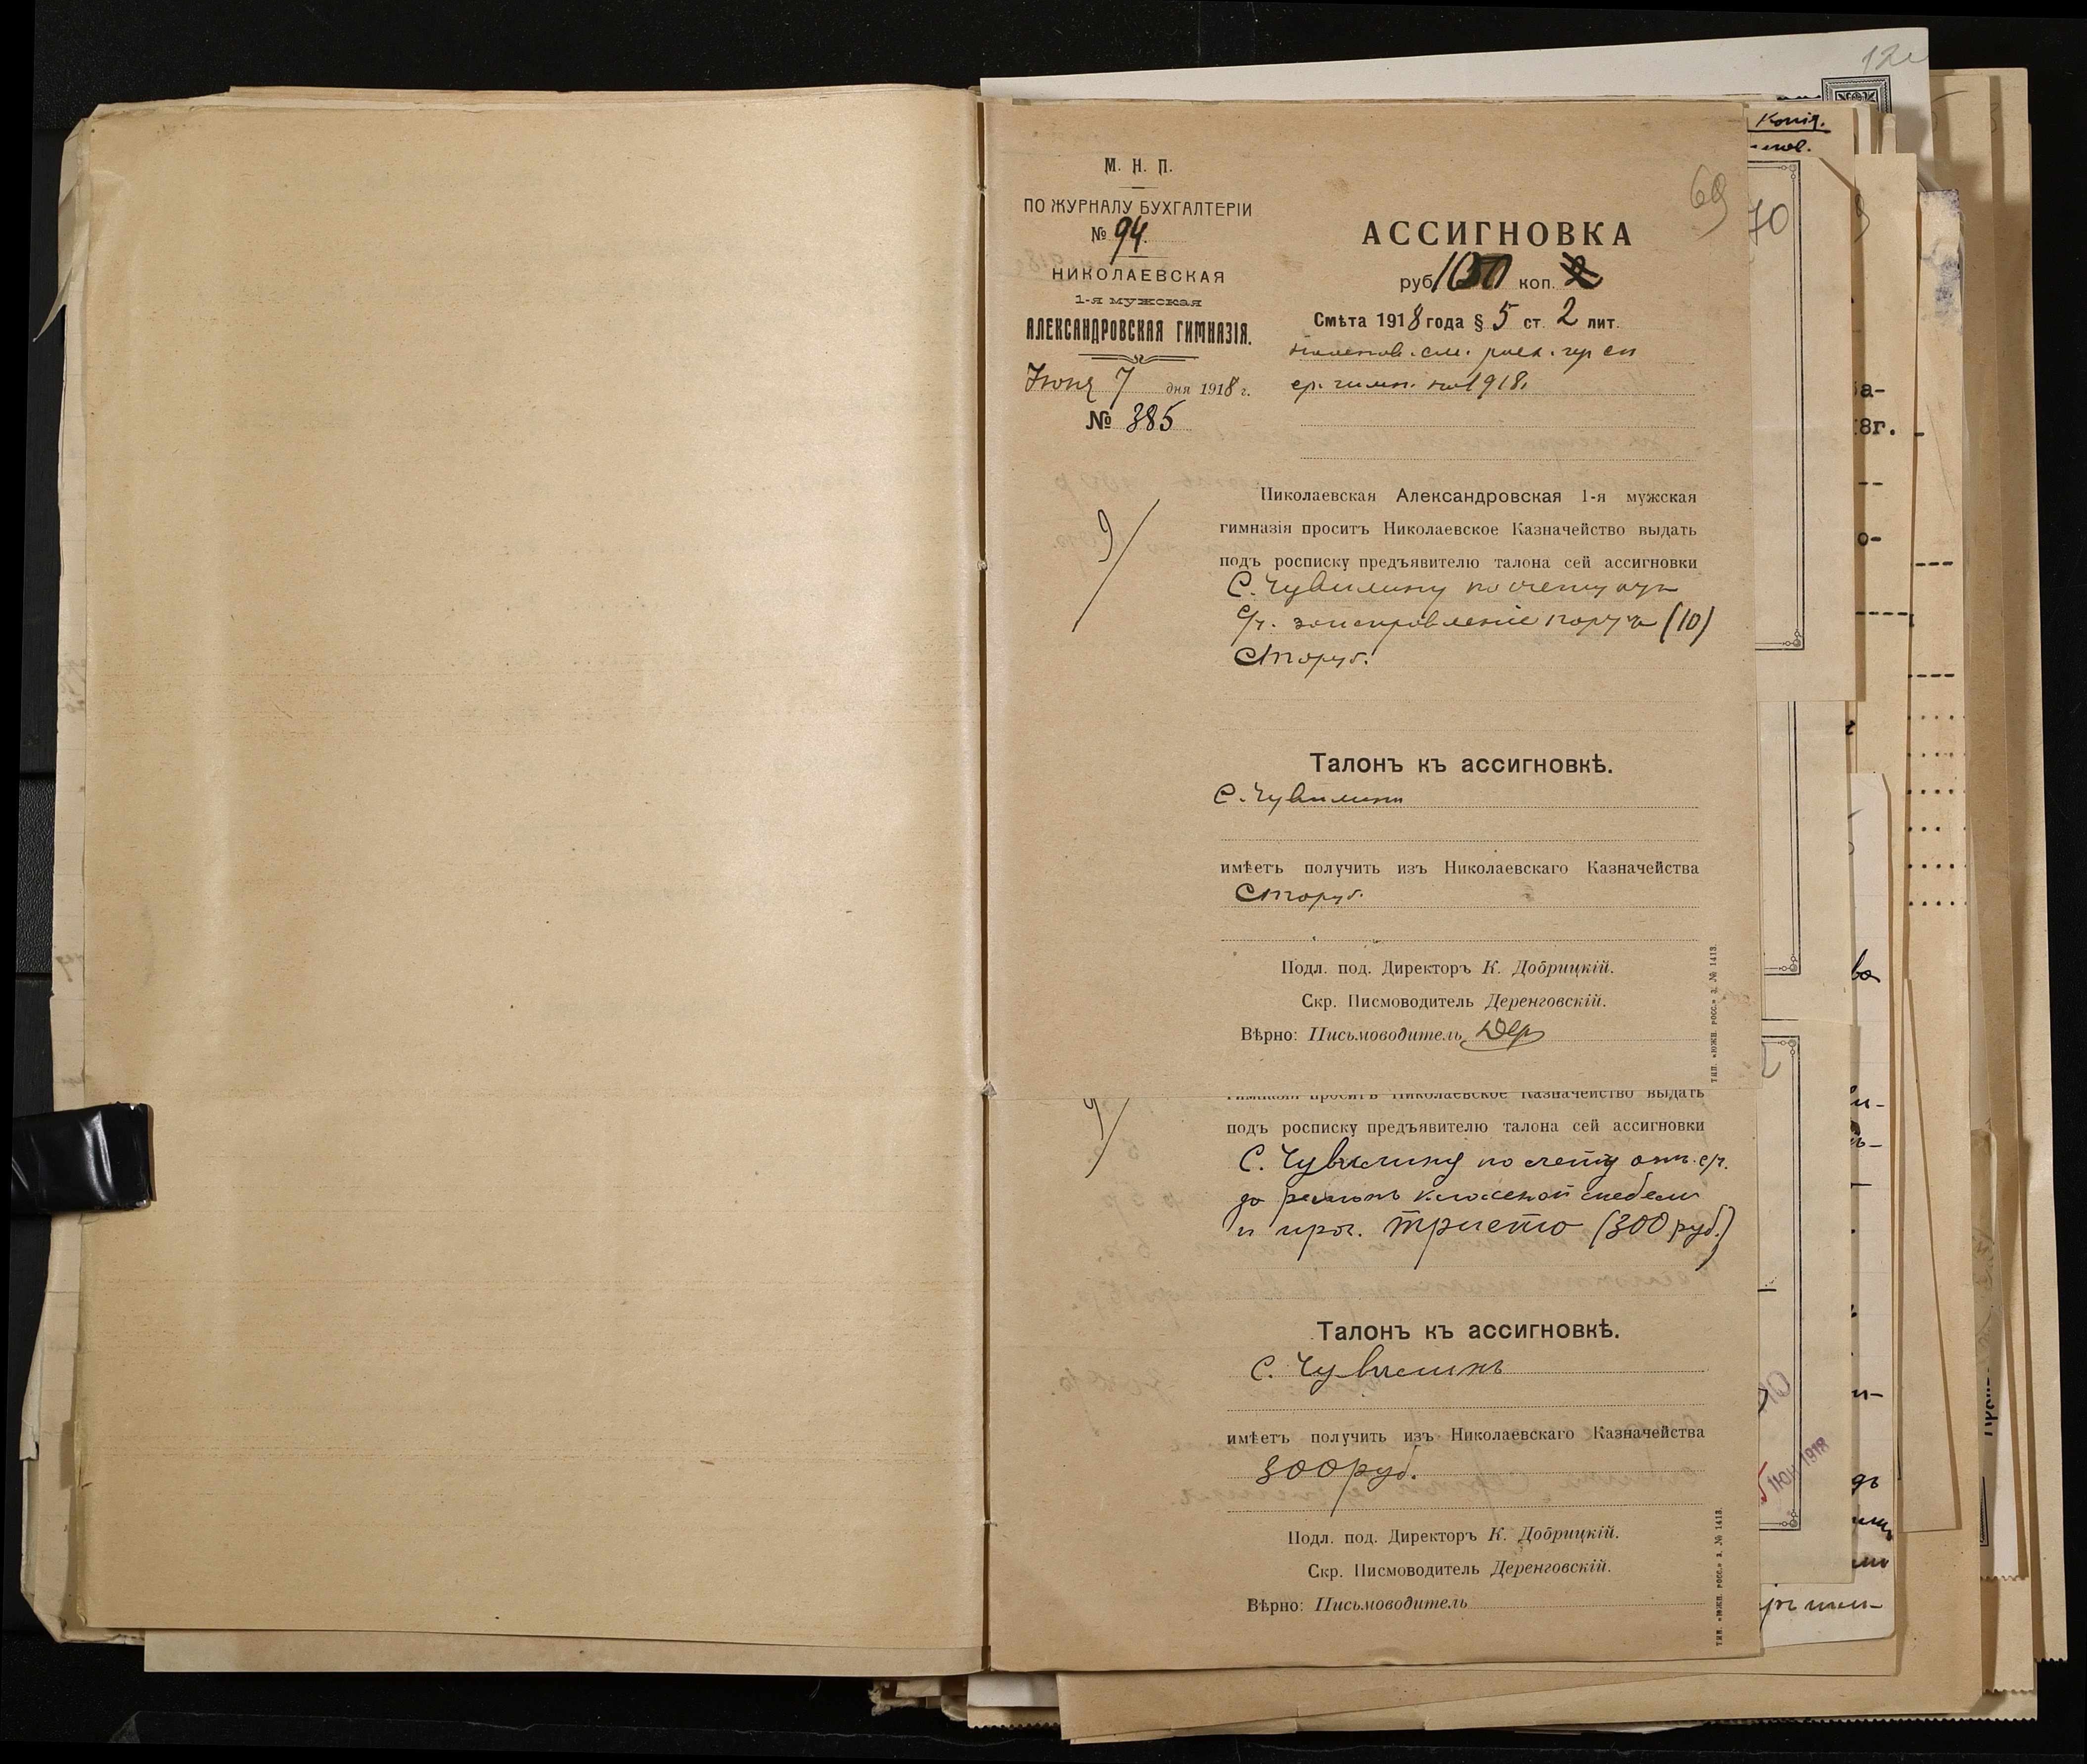 М. Н. П.
ПО ЖУРНАЛУ БУХГАЛТЕРІИ
№ 94.
НИКОЛАЕВСКАЯ
1-я мужская
АЛЕКСАНДРОВСКАЯ ГИМНАЗІЯ.
Іюня 7 дня 1918 г.
№ 385
69
АССИГНОВКА
руб. 100 коп.
Смѣта 1918 года § 5 ст. 2 лит.
на 1918.
Николаевская Александровская 1-я мужская
гимназія проситъ Николаевское Казначейство выдать
подъ росписку предъявителю талона сей ассигновки
С. Чувилину по счету
(10)
Сто руб.
Талонъ къ ассигновкѣ.
С. Чувилинъ
имѣетъ получить изъ Николаевскаго Казначейства
Сто руб.
Подл. под. Директоръ К. Добрицкій.
Скр. Писмоводитель Деренговскій.
Вѣрно: Письмоводитель Дер
ТИП. «ЮЖН. РОСС.» З. № 1413.
гимназія проситъ Николаевское Казначейство выдать
подъ росписку предъявителю талона сей ассигновки
С. Чувилину по счету
классной мебели
и проч. триста (300 руб.)
Талонъ къ ассигновкѣ.
С. Чувилинъ
имѣетъ получить изъ Николаевскаго Казначейства
300 руб.
Подл. под. Директоръ К. Добрицкій.
Скр. Писмоводитель Деренговскій.
Вѣрно: Письмоводитель
ТИП. «ЮЖН. РОСС.» З. № 1413.
Копія.
70
8г.
1918